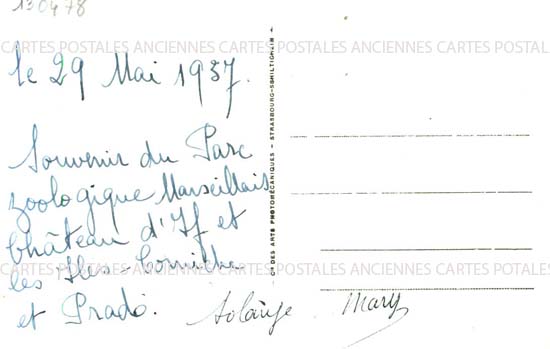 130478
CARTES POSTALES ANCIENNES CARTES POSTALES ANCIENNES CARTES POSTAL
le 29 Mai 1937.
Souvenir du Parc
zoologique Marseillais
Château d'If et
les Iles - Corniche
CARTES POSTALES ANCIENNES CARTES POSTALES ANCIENNES CARTES POTALES
et Prado.
Solange Mary
Cie DES ARTS PHOTOMÉCANIQUES - STRASBOURG-SCHILTIGHEIM